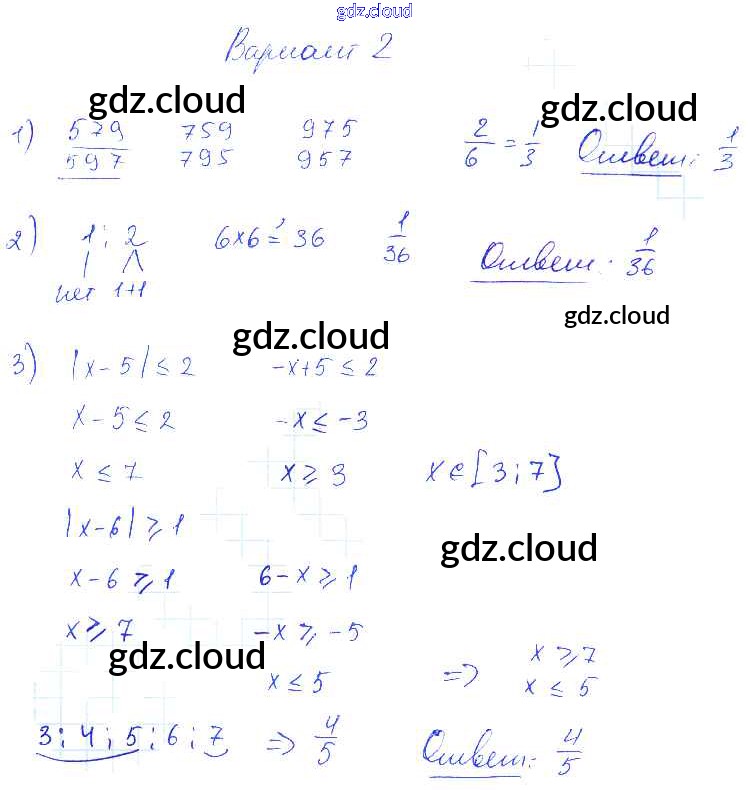 gdz.cloud
Вариант 2
gdz.cloud gdz.cloud
1) 579 759 975 2/6 = 1/3 Ответ: 1/3
597 795 957
2) 1; 2 6×6 = 36 1/36 Ответ: 1/36
нет 1+1
gdz.cloud
gdz.cloud
3) |x-5| ≤ 2 -x+5 ≤ 2
x-5 ≤ 2 -x ≤ -3
x ≤ 7 x ≥ 3 x ∈ [3; 7]
|x-6| ≥ 1
gdz.cloud
x-6 ≥ 1 6-x ≥ 1
x ≥ 7 -x ≥ -5
gdz.cloud
x ≤ 5 => x ≥ 7
x ≤ 5
3; 4; 5; 6; 7 => 4/5 Ответ: 4/5